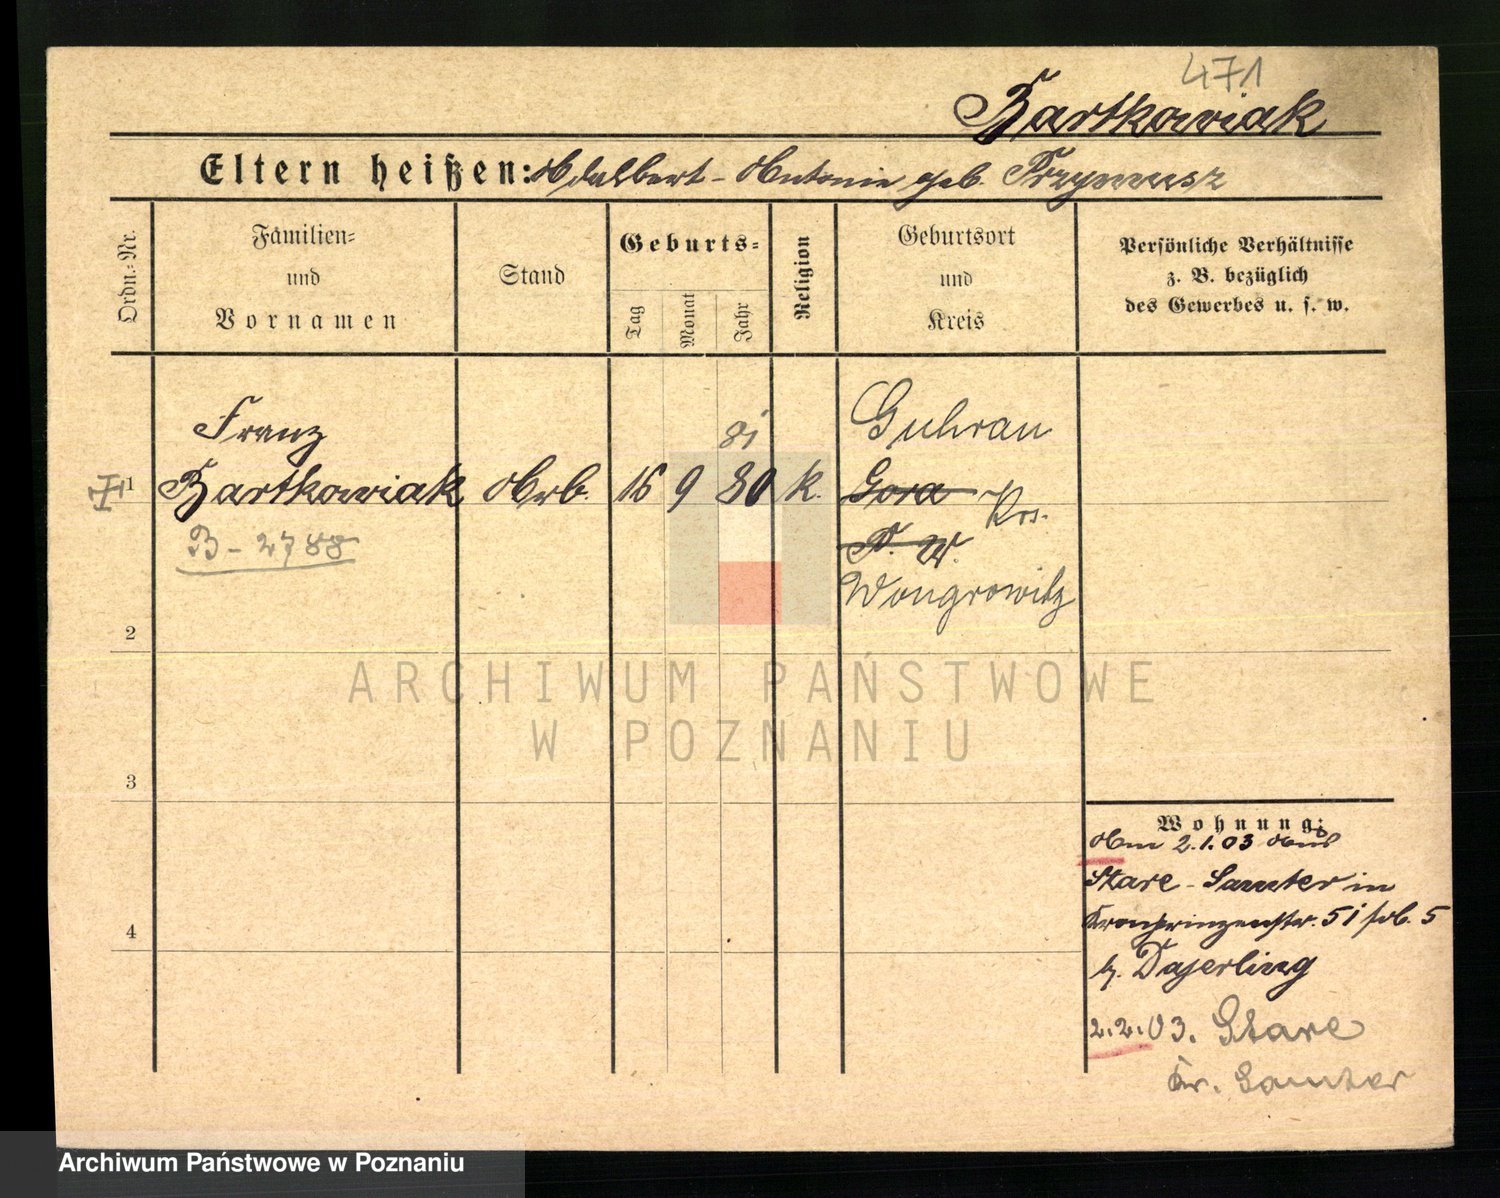 471
Bartkowiak
Eltern heißen: Adalbert - Antonie geb. Przymusz
Ordn.-Nr.
Familien-
und
Vornamen
Stand
Geburts-
Tag
Monat
Jahr
Religion
Geburtsort
und
Kreis
Persönliche Verhältnisse
z. B. bezüglich
des Gewerbes u. s. w.
Franz
81
Guhran
1
Bartkowiak
Arb.
16
9
80
k.
Gora
Krs.
B - 2788
P. W.
Wongrowitz
2
ARCHIWUM PAŃSTWOWE
W POZNANIU
3
Wohnung:
Am 2.1.03 aus
Stare - Samter in
4
Kronprinzenstr. 51 frb. 5
b. Dajerling
2.2.03. Stare
Kr. Samter
Archiwum Państwowe w Poznaniu